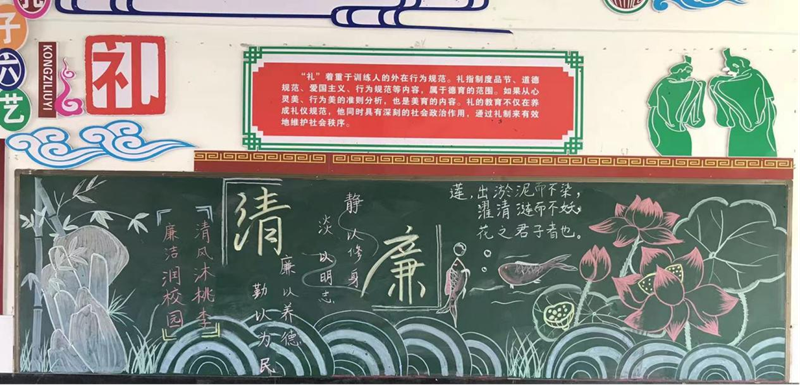 孔
子
六
艺
KONGZILIUYI
礼
“礼”着重于训练人的外在行为规范。礼指制度品节、道德
规范、爱国主义、行为规范等内容，属于德育的范围。如果从心
灵美、行为美的准则分析，也是美育的内容。礼的教育不仅在养
成礼仪规范，他同时具有深刻的社会政治作用，通过礼制来有效
地维护社会秩序。
清风沐桃李
廉洁润校园
清
静以修身
淡以明志
廉以养德
勤以为民
廉
莲，出淤泥而不染，
濯清涟而不妖。
花之君子者也。